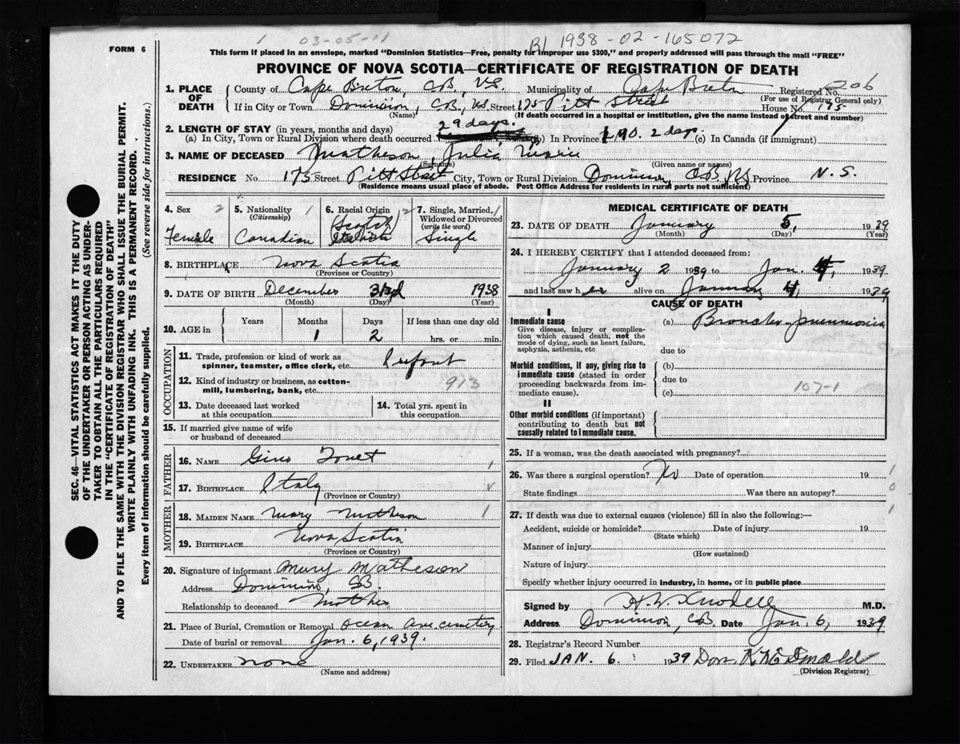 03-05-11
FORM 6
B1 1938-02-165072
This form if placed in an envelope, marked "Dominion Statistics—Free, penalty for improper use $300," and properly addressed will pass through the mail "FREE"
PROVINCE OF NOVA SCOTIA—CERTIFICATE OF REGISTRATION OF DEATH
1. PLACE OF DEATH
County of Cape Breton, CB, NS. Municipality of Cape Breton Registered No. 206
(For use of Registrar General only)
If in City or Town Dominion, CB, NS. Street 175 Pitt Street House No. 175
(Name) (If death occurred in a hospital or institution, give the name instead of street and number)
2. LENGTH OF STAY (in years, months and days) 29 days.
(a) In City, Town or Rural Division where death occurred (b) In Province 1 mo. 2 days. (c) In Canada (if immigrant)
3. NAME OF DECEASED Matheson, Julia Marie
(Surname) (Given name or names)
RESIDENCE No. 175 Street Pitt Street City, Town or Rural Division Dominion, CB NS Province N.S.
(Residence means usual place of abode. Post Office Address for residents in rural parts not sufficient)
4. Sex 2 Female
5. Nationality (Citizenship) 1 Canadian
6. Racial Origin 2 Scotch
7. Single, Married, Widowed or Divorced (write the word) 1 Single
8. BIRTHPLACE Nova Scotia
(Province or Country)
9. DATE OF BIRTH December 3rd 1938
(Month) (Day) (Year)
10. AGE in Years Months Days If less than one day old
1 2 hrs. or min.
OCCUPATION
11. Trade, profession or kind of work as spinner, teamster, office clerk, etc. Infant
12. Kind of industry or business, as cotton-mill, lumbering, bank, etc. 913
13. Date deceased last worked at this occupation
14. Total yrs. spent in this occupation
15. If married give name of wife or husband of deceased
FATHER
16. NAME Gino 1
17. BIRTHPLACE Italy
(Province or Country)
MOTHER
18. MAIDEN NAME Mary Matheson 1
19. BIRTHPLACE Nova Scotia
(Province or Country)
20. Signature of informant Mary Matheson
Address Dominion, CB
Relationship to deceased Mother
21. Place of Burial, Cremation or Removal Ocean Ave. cemetery
Date of burial or removal Jan. 6, 1939.
22. UNDERTAKER none
(Name and address)
MEDICAL CERTIFICATE OF DEATH
23. DATE OF DEATH January 5, 1939
(Month) (Day) (Year)
24. I HEREBY CERTIFY that I attended deceased from:
January 2 1939 to Jan. 4, 1939
and last saw her alive on January 4, 1939
CAUSE OF DEATH
I
Immediate cause (a) Broncho-pneumonia
Give disease, injury or complication which caused death, not the mode of dying, such as heart failure, asphyxia, asthenia, etc.
due to
Morbid conditions, if any, giving rise to immediate cause (stated in order proceeding backwards from immediate cause).
(b)
due to
(c) 107-1
II
Other morbid conditions (if important) contributing to death but not causally related to immediate cause.
25. If a woman, was the death associated with pregnancy?
26. Was there a surgical operation? No Date of operation 19 1
State findings Was there an autopsy? 0
27. If death was due to external causes (violence) fill in also the following:— 1
Accident, suicide or homicide? Date of injury 19
(State which)
Manner of injury
(How sustained)
Nature of injury
Specify whether injury occurred in industry, in home, or in public place
Signed by M.D.
Address Dominion, CB Date Jan 6, 1939
28. Registrar's Record Number
29. Filed JAN. 6. 1939 Don. K McDonald
(Division Registrar)
SEC. 46—VITAL STATISTICS ACT MAKES IT THE DUTY
OF THE UNDERTAKER OR PERSON ACTING AS UNDER-
TAKER TO OBTAIN ALL THE PARTICULARS REQUIRED
IN THE "CERTIFICATE OF REGISTRATION OF DEATH"
AND TO FILE THE SAME WITH THE DIVISION REGISTRAR WHO SHALL ISSUE THE BURIAL PERMIT.
WRITE PLAINLY WITH UNFADING INK. THIS IS A PERMANENT RECORD.
Every item of information should be carefully supplied. (See reverse side for instructions.)